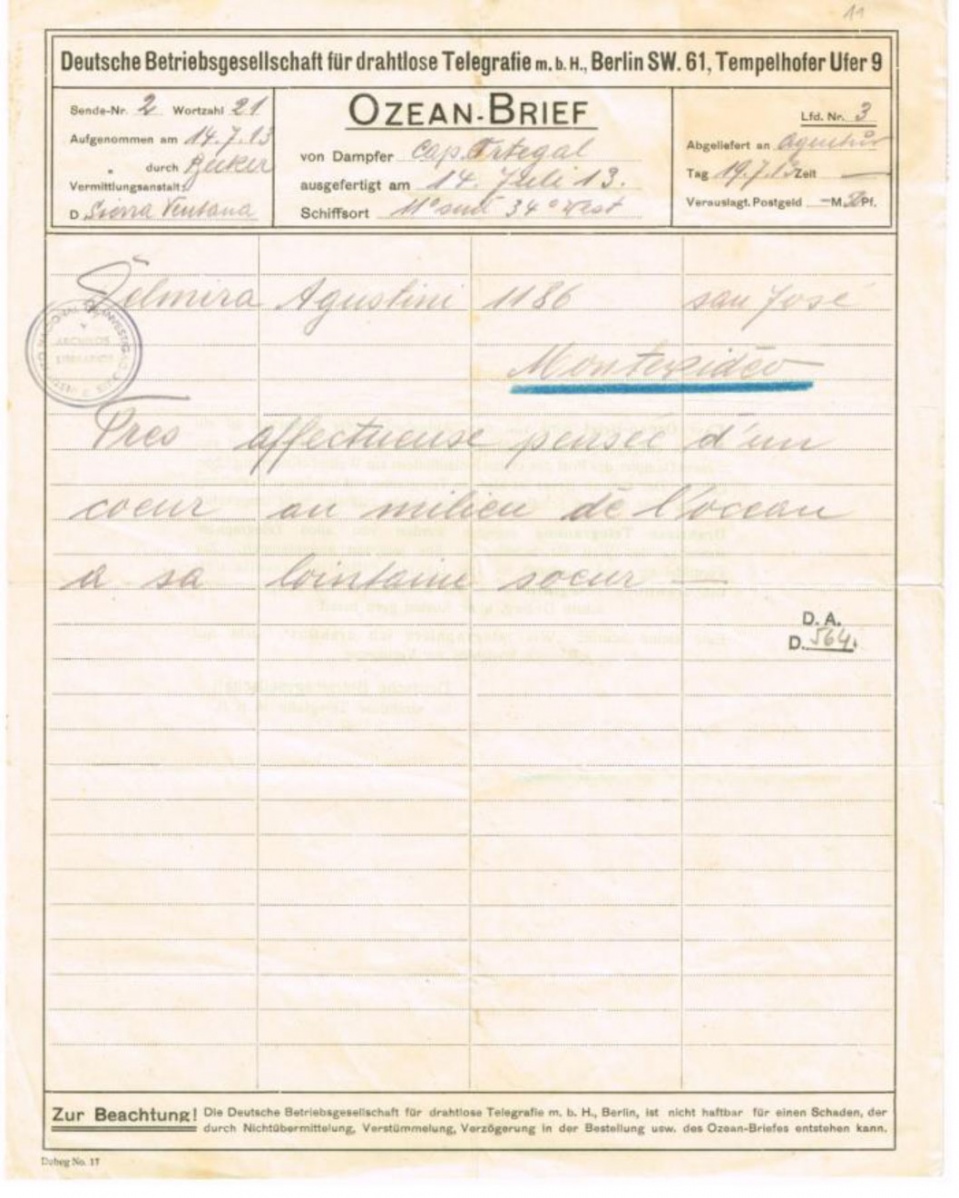 11
Deutsche Betriebsgesellschaft für drahtlose Telegrafie m. b. H., Berlin SW. 61, Tempelhofer Ufer 9
Sende-Nr. 2 Wortzahl 21
Aufgenommen am 14.7.13
" durch Becker
Vermittlungsanstalt:
D Sierra Ventana
OZEAN-BRIEF
von Dampfer Cap. Ortegal
ausgefertigt am 14. Juli 13.
Schiffsort 11° sud 34° West
Lfd. Nr. 3
Abgeliefert an Agentur
Tag 19.7.13 Zeit —
Verauslagt. Postgeld — M. Pf.
Delmira Agustini 1186 san José
Montevideo
Tres affectueuse pensée d'un
coeur au milieu de l'ocean
a sa lointaine soeur —
D. A.
D. 564.
Zur Beachtung! Die Deutsche Betriebsgesellschaft für drahtlose Telegrafie m. b. H., Berlin, ist nicht haftbar für einen Schaden, der
durch Nichtübermittelung, Verstümmelung, Verzögerung in der Bestellung usw. des Ozean-Briefes entstehen kann.
Debeg No. 17